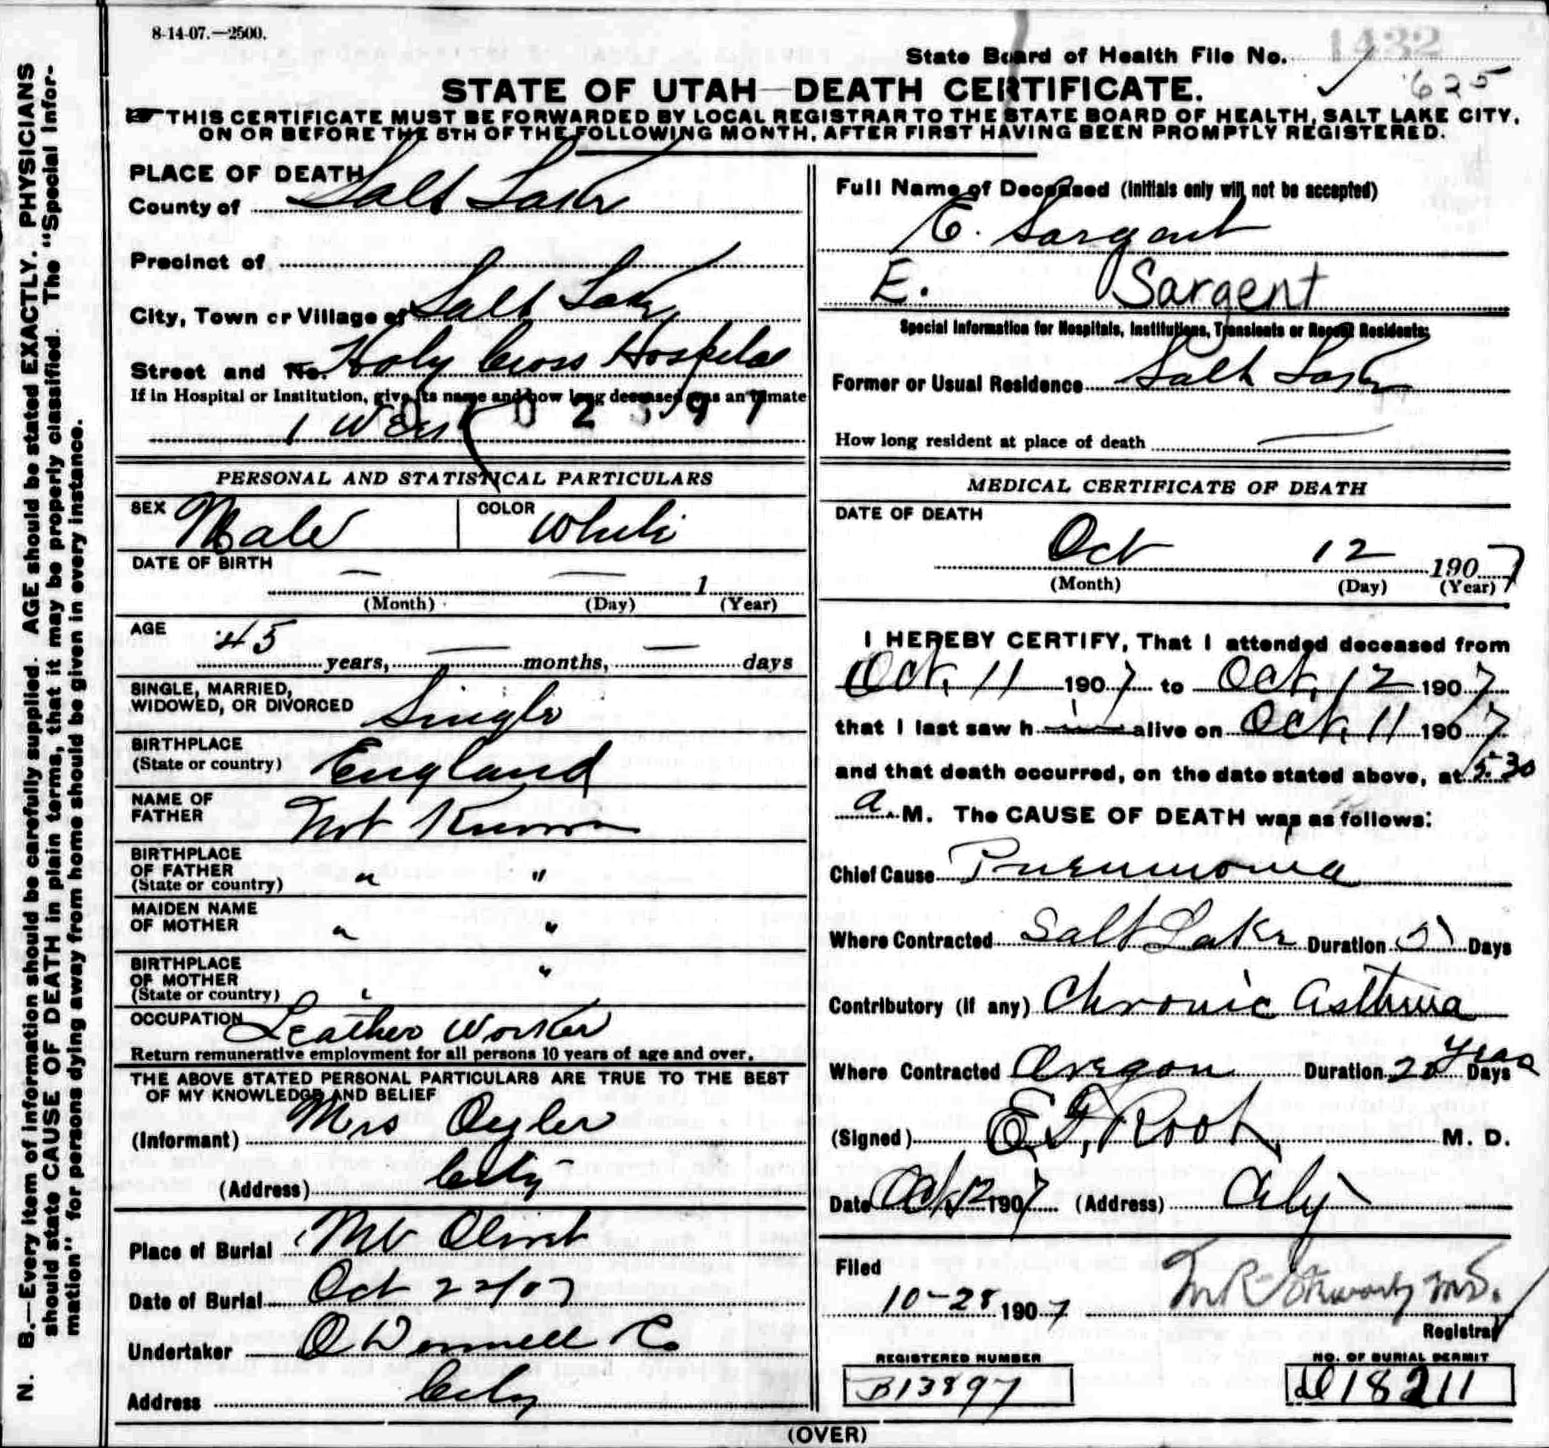 8-14-07.—2500.
State Board of Health File No. 1432
625
STATE OF UTAH—DEATH CERTIFICATE.
THIS CERTIFICATE MUST BE FORWARDED BY LOCAL REGISTRAR TO THE STATE BOARD OF HEALTH, SALT LAKE CITY,
ON OR BEFORE THE 5TH OF THE FOLLOWING MONTH, AFTER FIRST HAVING BEEN PROMPTLY REGISTERED.
N. B.—Every item of information should be carefully supplied. AGE should be stated EXACTLY. PHYSICIANS
should state CAUSE OF DEATH in plain terms, that it may be properly classified. The "Special Infor-
mation" for persons dying away from home should be given in every instance.
PLACE OF DEATH
County of Salt Lake
Precinct of
City, Town or Village of Salt Lake
Street and No. Holy Cross Hospital
If in Hospital or Institution, give its name and how long deceased was an inmate
1 Week
PERSONAL AND STATISTICAL PARTICULARS
SEX Male COLOR White
DATE OF BIRTH
— — 1
(Month) (Day) (Year)
AGE 45 years, — months, — days
SINGLE, MARRIED,
WIDOWED, OR DIVORCED Single
BIRTHPLACE
(State or country) England
NAME OF
FATHER Not Known
BIRTHPLACE
OF FATHER
(State or country) " "
MAIDEN NAME
OF MOTHER " "
BIRTHPLACE
OF MOTHER
(State or country) " "
OCCUPATION Leather Worker
Return remunerative employment for all persons 10 years of age and over.
THE ABOVE STATED PERSONAL PARTICULARS ARE TRUE TO THE BEST
OF MY KNOWLEDGE AND BELIEF
(Informant) Mrs Oyler
(Address) City
Place of Burial Mt Olivet
Date of Burial Oct 22/07
Undertaker O Donnell & Co
Address City
Full Name of Deceased (Initials only will not be accepted)
E. Sargent
E. Sargent
Special Information for Hospitals, Institutions, Transients or Recent Residents:
Former or Usual Residence Salt Lake
How long resident at place of death —
MEDICAL CERTIFICATE OF DEATH
DATE OF DEATH
Oct 12 1907
(Month) (Day) (Year)
I HEREBY CERTIFY, That I attended deceased from
Oct. 11 1907 to Oct. 12 1907
that I last saw h i alive on Oct. 11 1907
and that death occurred, on the date stated above, at 5 30
a M. The CAUSE OF DEATH was as follows:
Chief Cause Pneumonia
Where Contracted Salt Lake Duration 5 Days
Contributory (if any) Chronic Asthma
Where Contracted Oregon Duration 20 Years Days
(Signed) E. F. Root, M. D.
Date Oct 12 1907 (Address) City
Filed
10-28 1907
Registrar
REGISTERED NUMBER
B13897
NO. OF BURIAL PERMIT
D18211
(OVER)